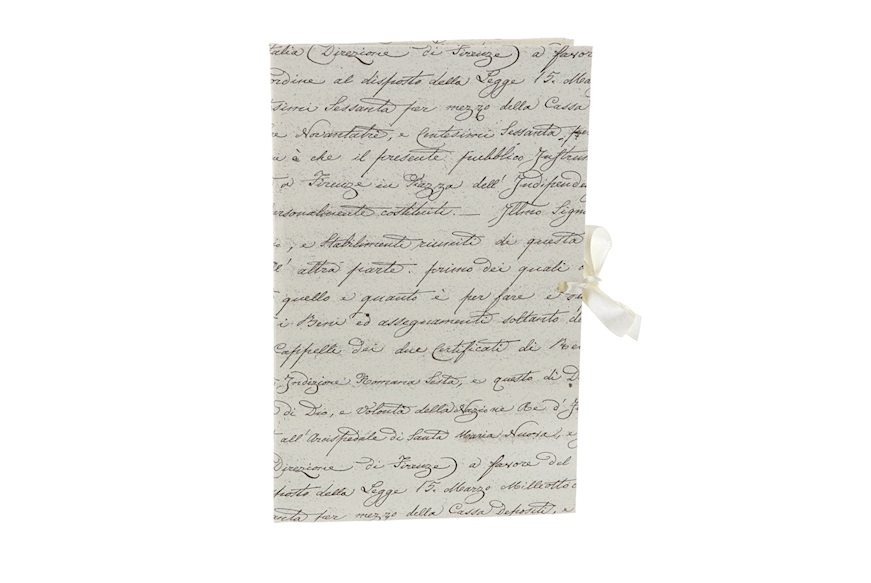 talia (Direzione di Firenze) a favore
ordine al disposto della Legge 15. Mar
simi Sessanta per mezzo della Cassa
re Novantatre, e Centesimi Sessanta, per
a è che il presente pubblico Instrum
a Firenze in Piazza dell' Indipende
personalmente costituiti. — Illmo Sign
io, e Stabilimenti riuniti di questa
ll' altra parte. primo dei quali
quello e quanto è per fare e
i Beni ed assegnamenti soltanto de
Cappelle dei due Certificati di Re
Indizione Romana Sesta, e questo di D
di Dio, e Volontà della Nazione Re d' I
all' Arcispedale di Santa Maria Nuova, e
Direzione di Firenze) a favore del
sposto della Legge 15. Marzo Milleotto
anta per mezzo della Cassa Depositi, e